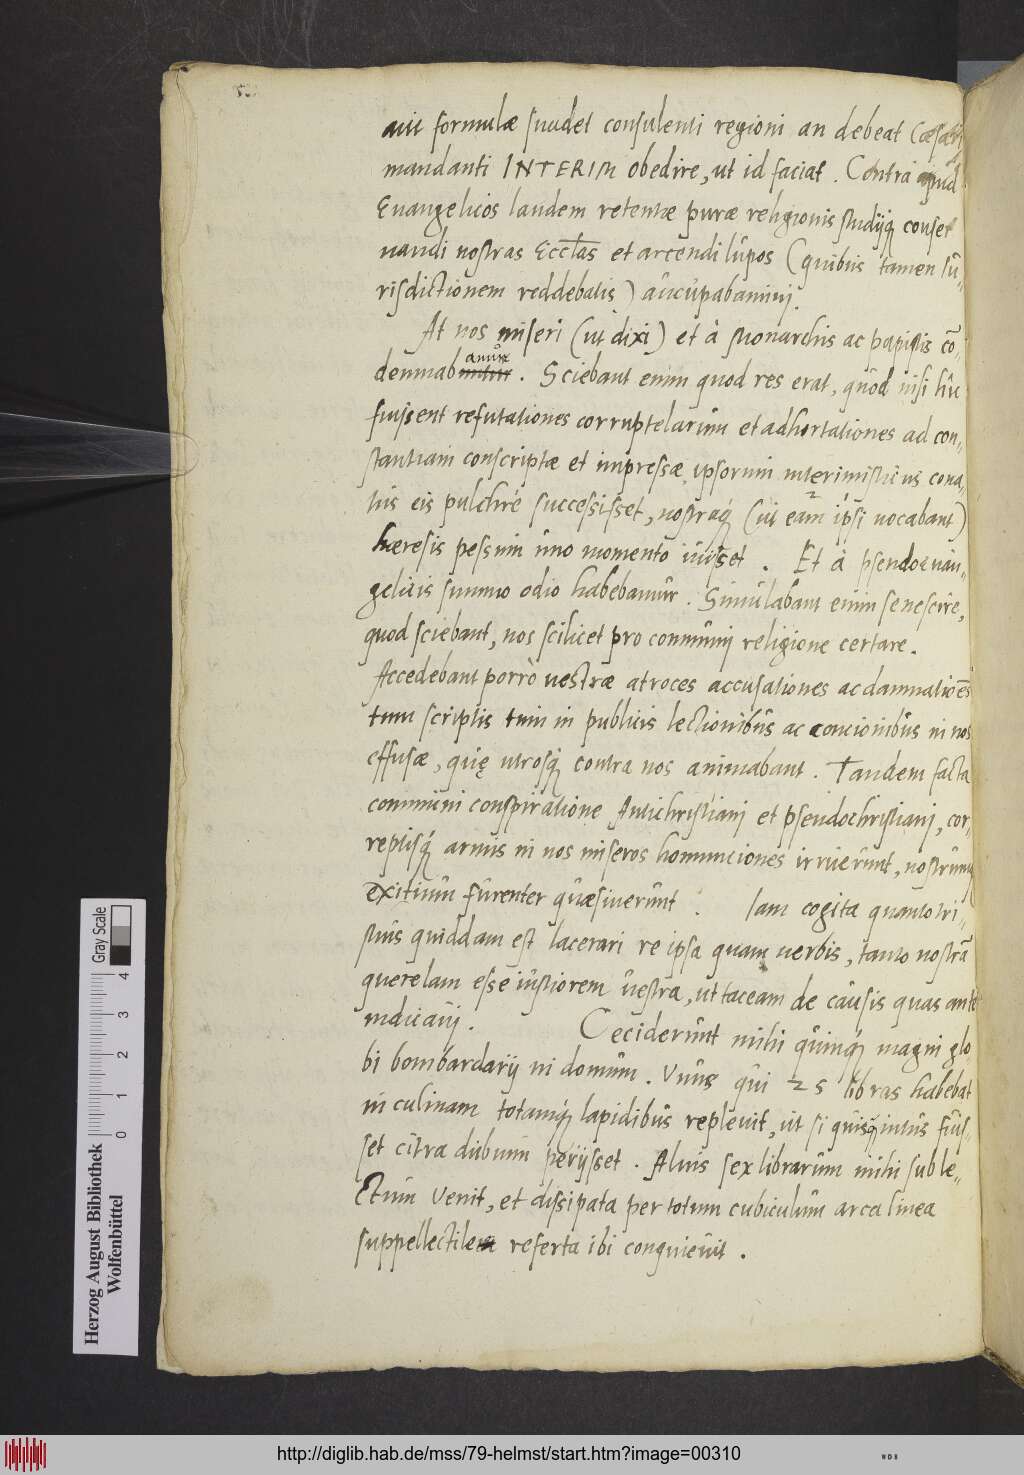 aut formulæ suadet consulenti regioni an debeat Cæsari
mandanti INTERIM obedire, ut id faciat. Contra apud
Euangelicos laudem retentæ puræ religionis studijq́ conser
uandi nostras Eccl̃as et arcendi lupos (quibus tamen Iu=
risdictionem reddebatis) aucupabamini.
At nos miseri (ut dixi) et à Monarchis ac papistis cō=
demnab antur. Sciebant enim quod res erat, quod nisi hu
fuissent refutationes corruptelarum et adhortationes ad con=
stantiam conscriptæ et impressæ, ipsorum interimisticus cona=
tus eis pulchrè successisset, nostraq́ (ut eam ipsi uocabant)
hæresis pessum uno momento iuisset. Et à pseudoeuan=
gelicis summo odio habebamur. Simulabant enim se nescire,
quod sciebant, nos scilicet pro communi religione certare.
Accedebant porrò uestræ atroces accusationes ac damnatiōes
tum scriptis tum in publicis lectionibus ac concionibus in nos
effusæ, quę utrosq́ contra nos animabant. Tandem facta
communi conspiratione Antichristiani et pseudochristiani, cor=
reptisq́ armis in nos miseros homunciones irruerunt, nostrumq́
exitium furenter quæsiuerunt. Iam cogita quanto tri=
stius quiddam est lacerari re ipsa quam uerbis, tanto nostrā
querelam esse iustiorem uestra, ut taceam de causis quas ante
indicauj. Ceciderunt mihi quinq́ magni glo
bi bombardarij in domum. Vnus qui 25 libras habebat
in culinam totamq́ lapidibus repleuit, ut si quisq̃ intus fuis=
set citra dubium perijsset. Alius sex librarum mihi sub le=
ctum venit, et dissipata per totum cubiculum arca linea
suppellectile referta ibi conquieuit.
Gray Scale
4 3 2 1 0
Herzog August Bibliothek
Wolfenbüttel
http://diglib.hab.de/mss/79-helmst/start.htm?image=00310